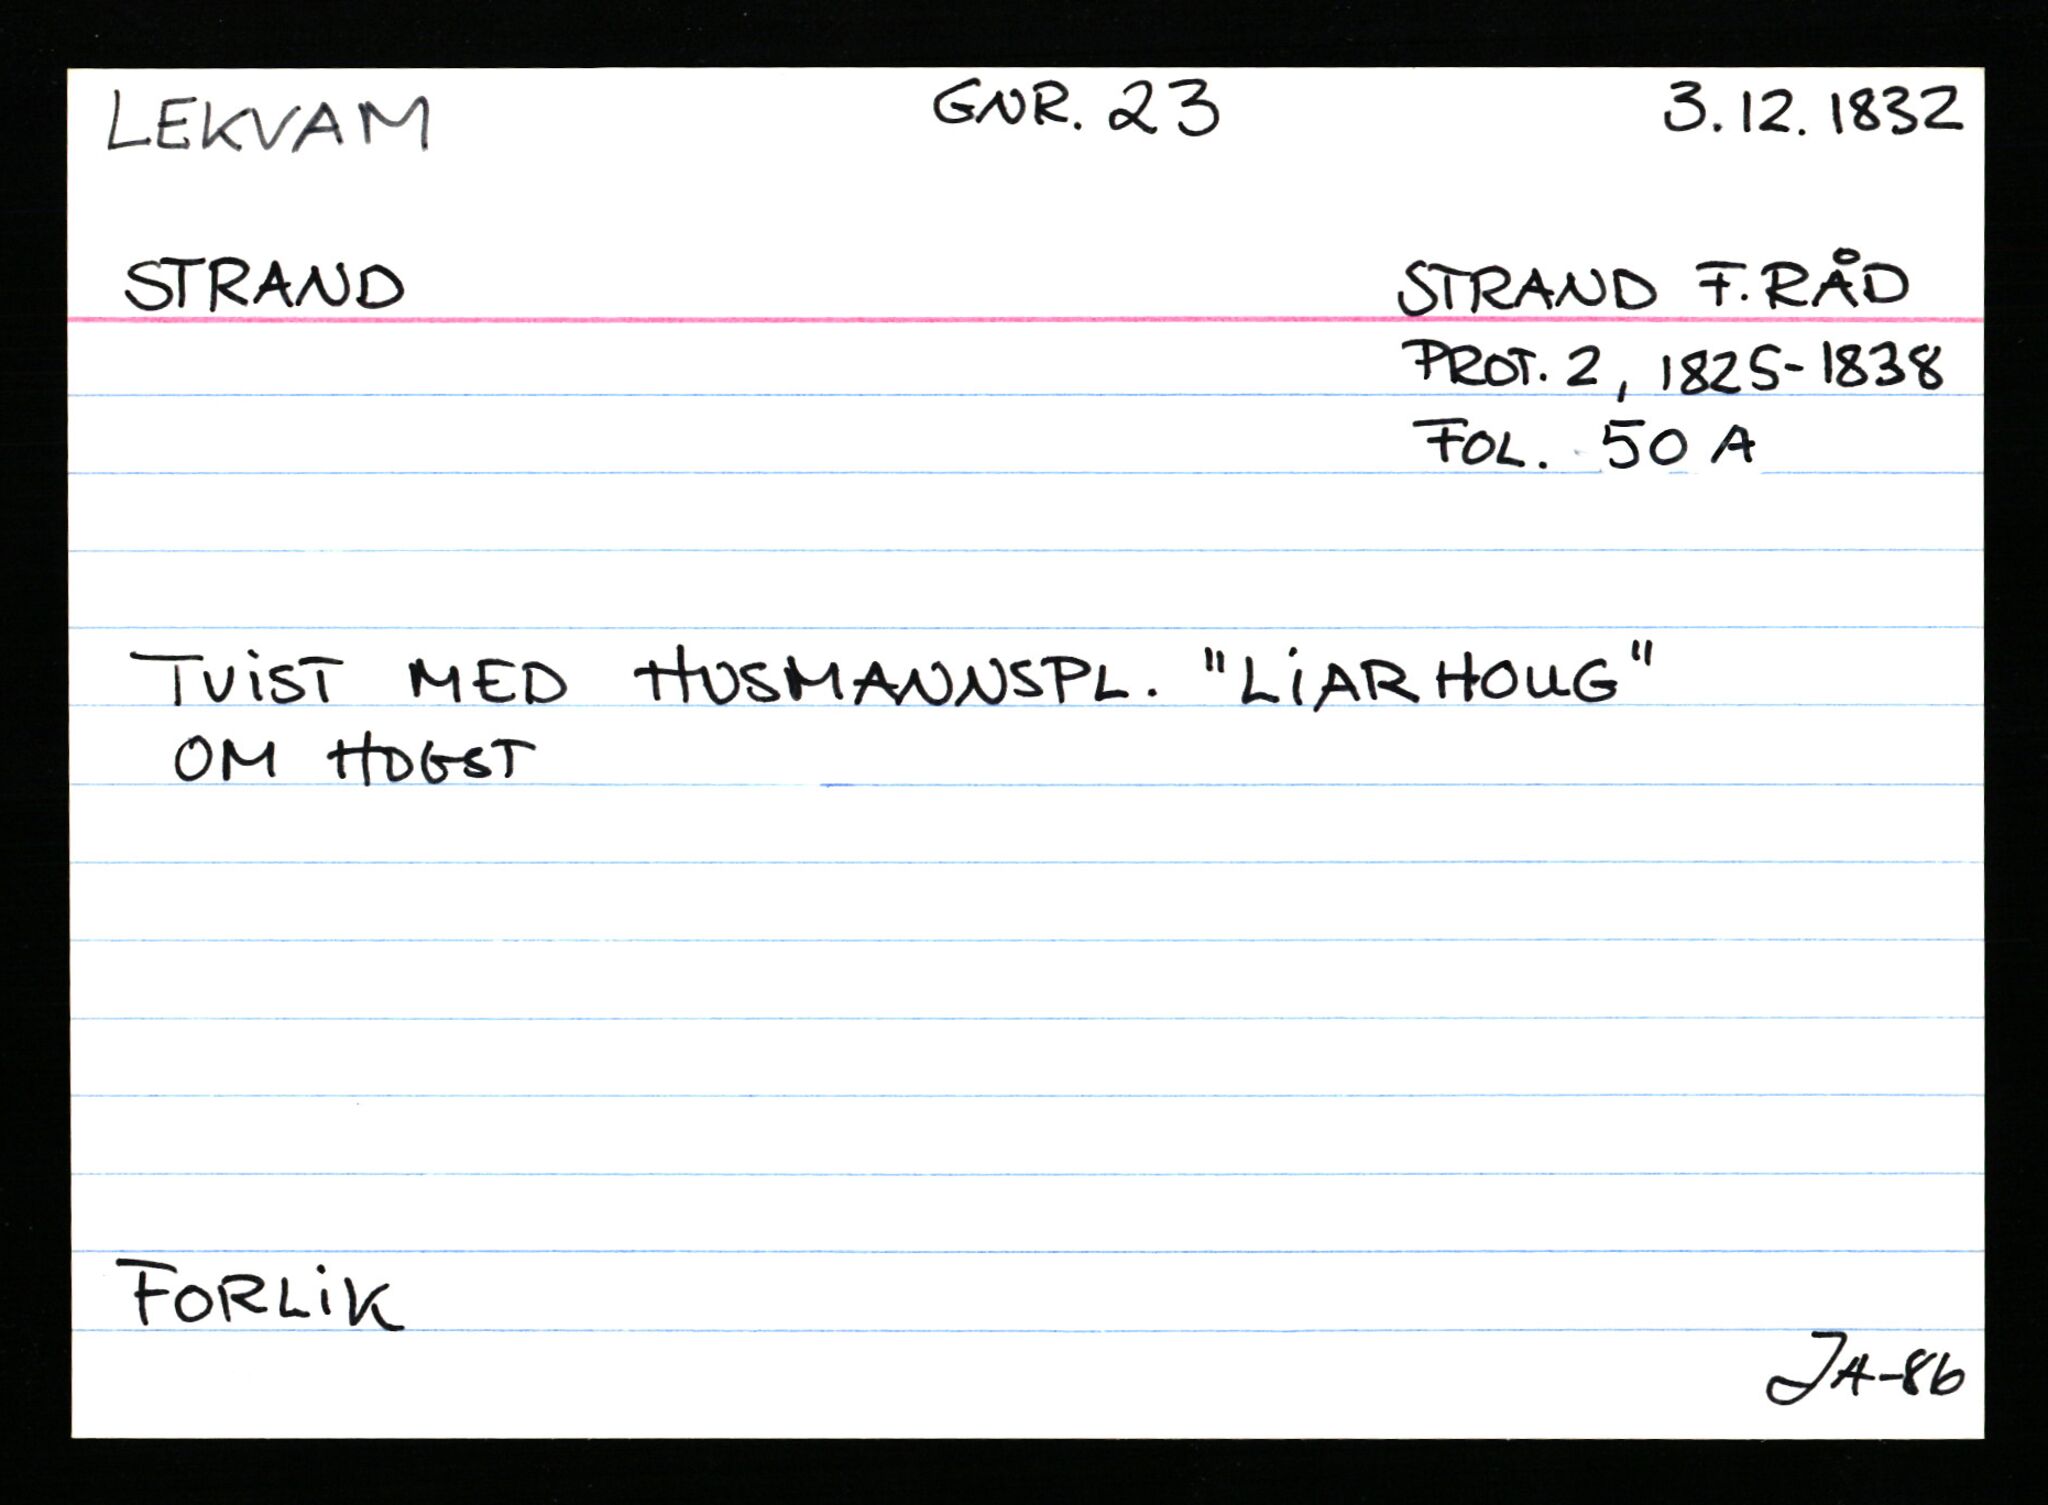 LEKVAM GNR. 23 3.12.1832
STRAND STRAND F.RÅD
PROT. 2, 1825-1838
FOL. 50 A
TVIST MED HUSMANNSPL. "LIARHOUG"
OM HOGST
FORLIK
JA-86